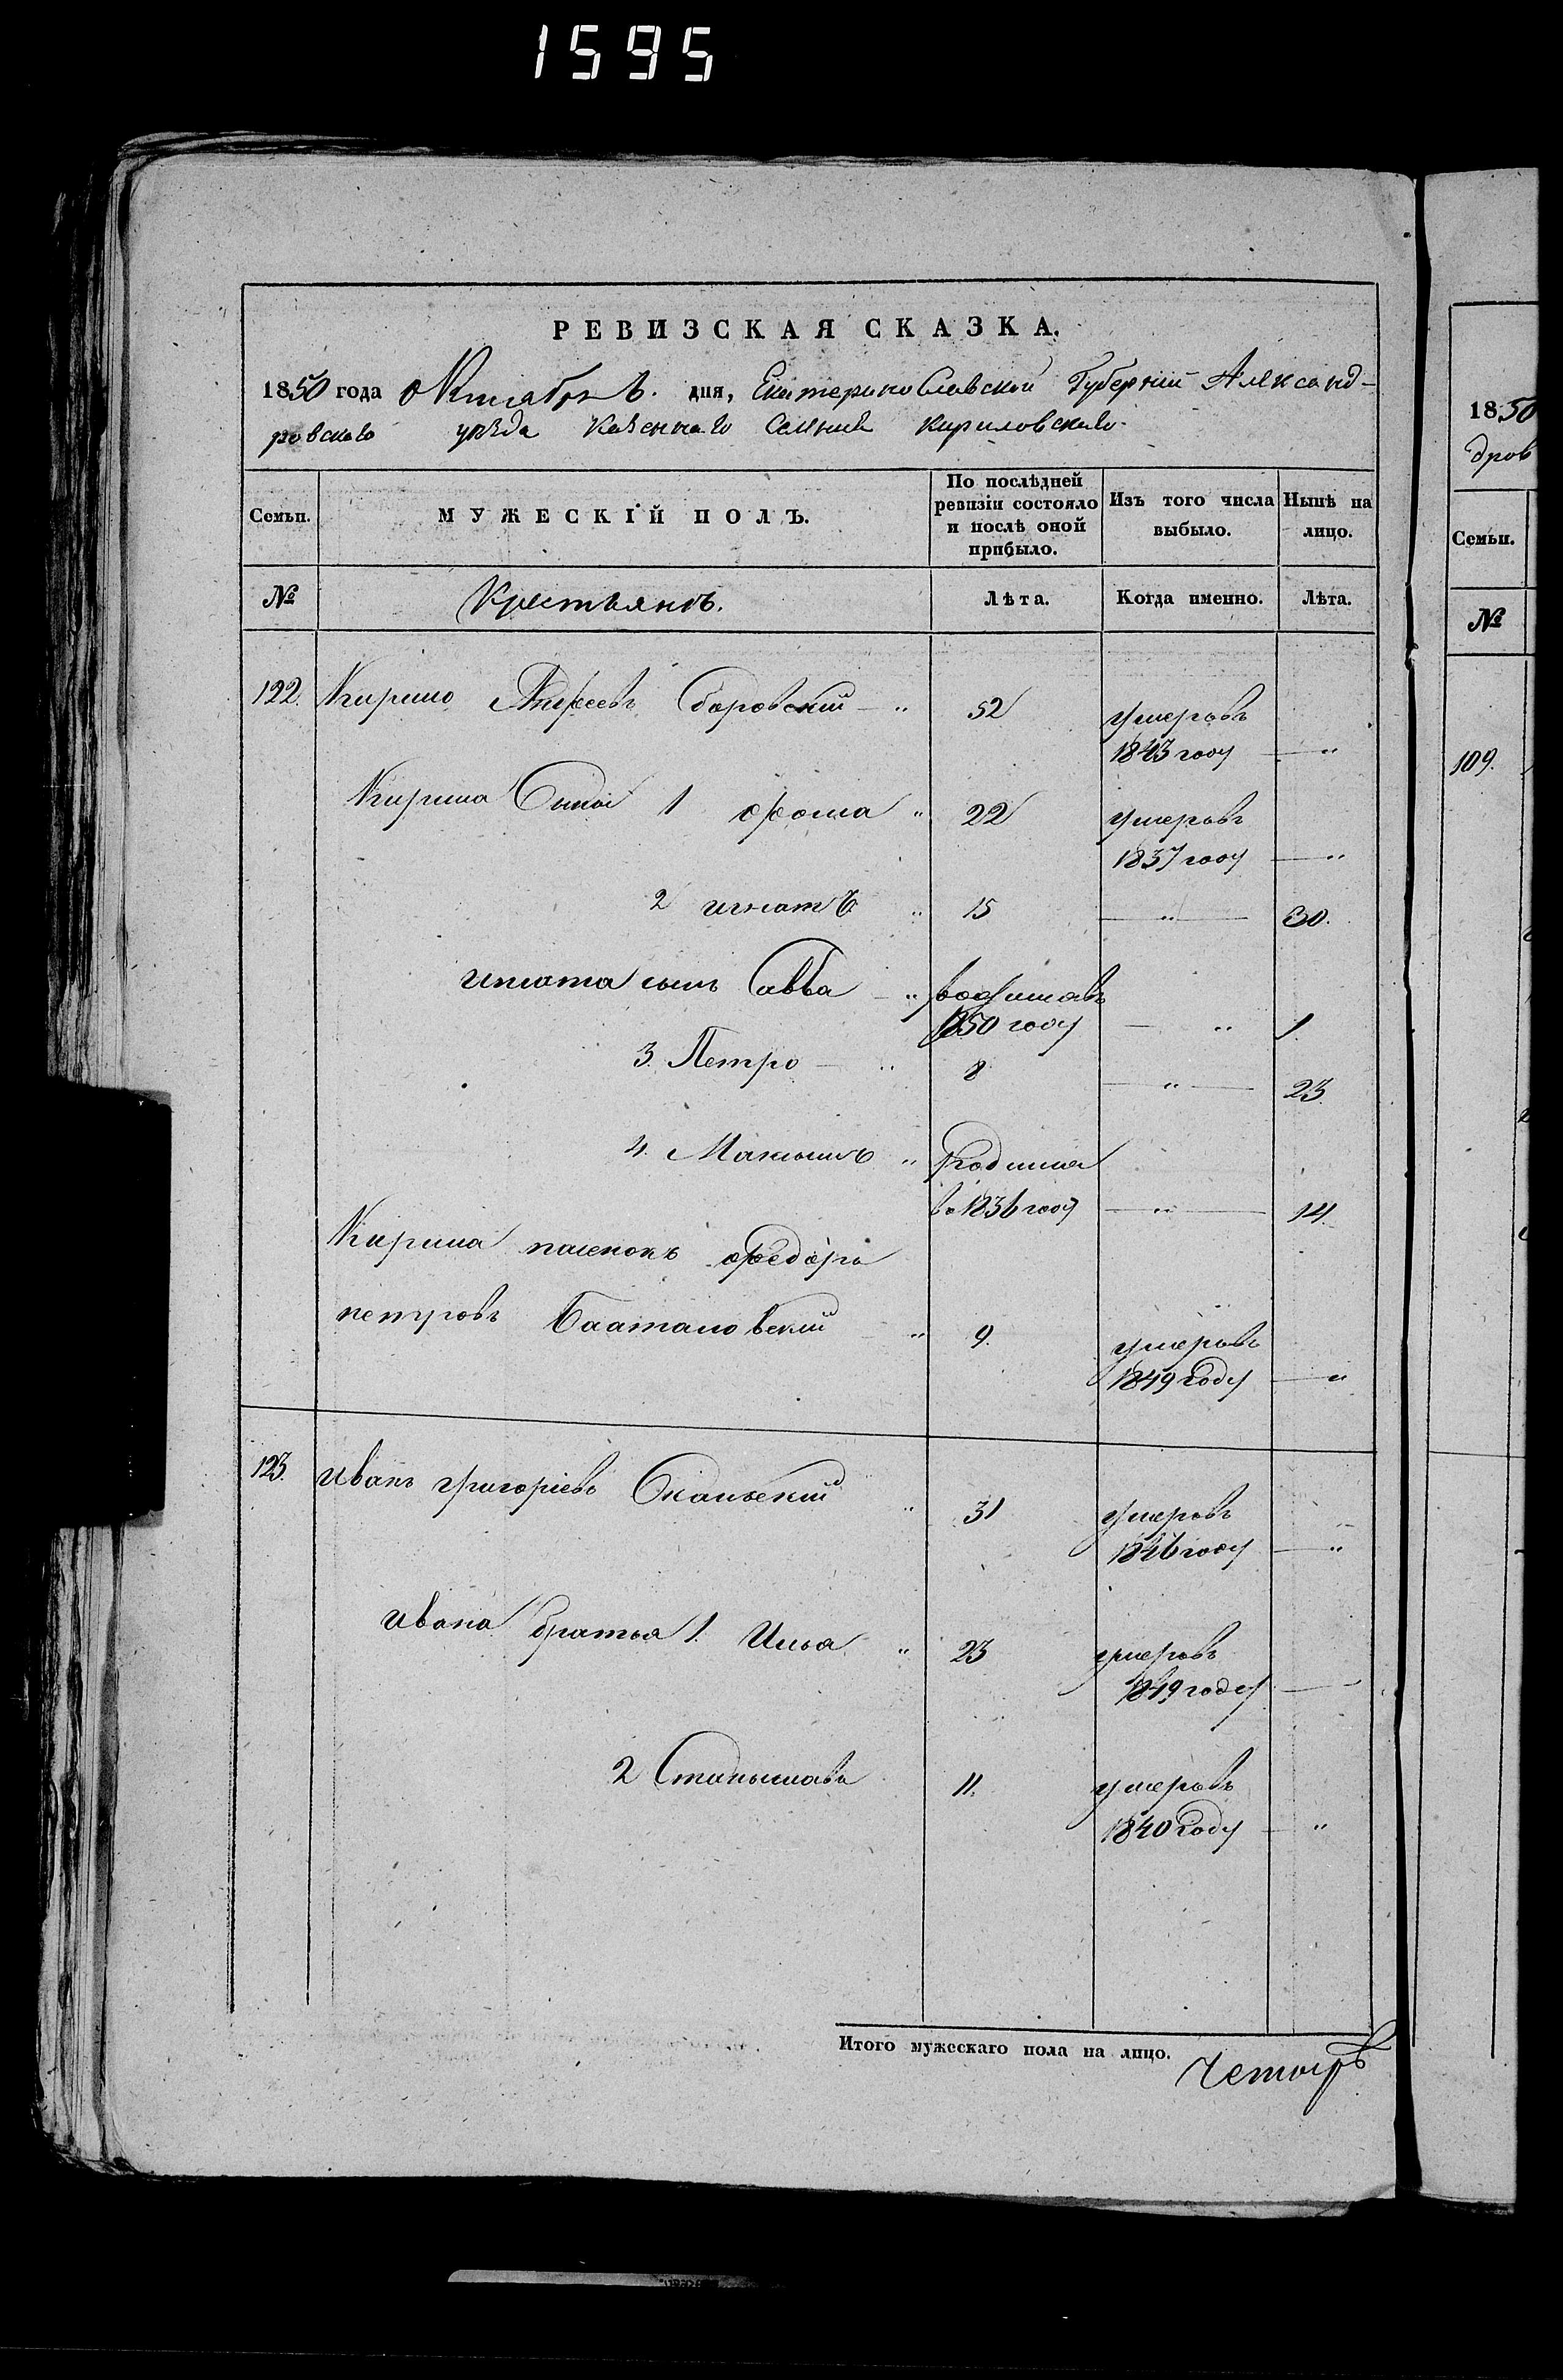 1595
РЕВИЗСКАЯ СКАЗКА.
1850 года Октября дня, Екатеринославской Губернии Александ-
ровского уезда Казенного Селения Кириловского
Семьи. МУЖЕСКІЙ ПОЛЪ. По послѣдней ревизіи состояло и послѣ оной прибыло. Изъ того числа выбыло. Нынѣ на лицо.
№ Крестьянъ. Лѣта. Когда именно. Лѣта.
122. Кирило Андреевъ 52 умеръ въ
1843 году
Кирила Сыны 1 Фома 22 умеръ въ
1837 году
2 игнатъ 15 30.
игната сынъ Савва
1850 году 1.
3. Петро 8 23.
4. Максимъ родился
въ 1836 году 14.
Кирила пасенокъ Федоръ
петровъ 9. умеръ въ
1849 году
123. иванъ григоріевъ 31 умеръ въ
1846 году
ивана братья 1. Илья 23 умеръ въ
1849 году
2 Станиславъ 11. умеръ въ
1840 году
Итого мужескаго пола на лицо. Четыре
1850
дров
Семьи.
№
109.